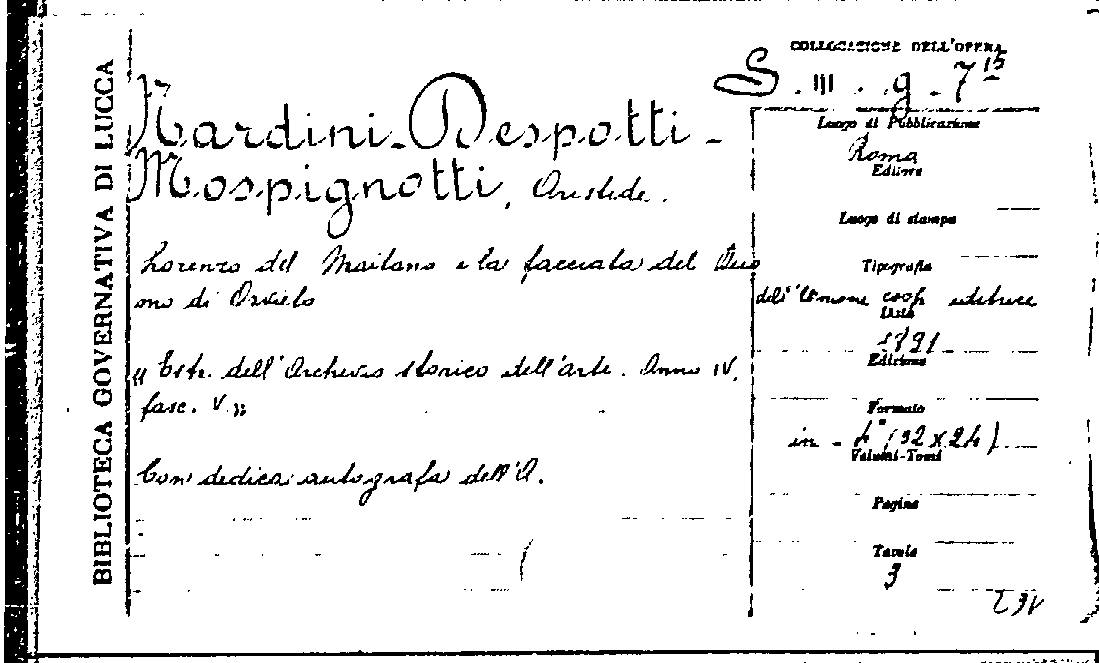 BIBLIOTECA GOVERNATIVA DI LUCCA
COLLOCAZIONE DELL'OPERA
S. III. g. 7 15
Nardini-Despotti-
Mospignotti, Aristide.
Lorenzo del Maitano e la facciata del Duo
mo di Orvieto
" Estr. dell'Archivio storico dell'arte. Anno IV,
fasc. V. "
Con dedica autografa dell'A.
Luogo di Pubblicazione
Roma
Editore
Luogo di stampa
Tipografia
dell'Unione coop. editrice
Data
1891
Edizione
Formato
in - 4° (32 x 24)
Volumi-Tomi
Pagine
Tavole
3